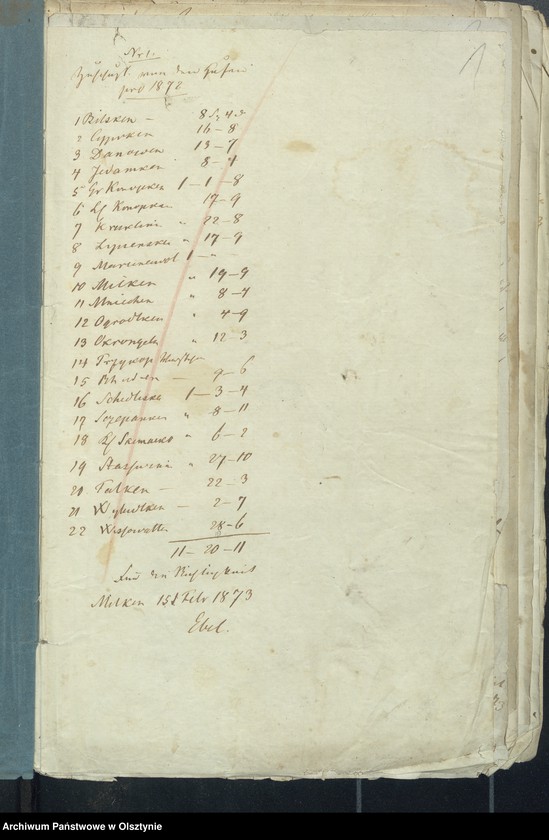 Nr 1.
von den Hufen
pro 1872
1 Bilsken — 8 Sg 4 d
2 Czyprken 16—8
3 Danowen 13—7
4 Jedamken 8—4
5 Gr Konopken 1—1—8
6 Kl Konopken 17—9
7 Kruklin " 22—8
8 Lipinsken " 17—9
9 Marcinawol 1—"
10 Milken " 19—9
11 Mniechen " 8—4
12 Ogrodtken " 4—9
13 Okrongeln " 12—3
14
15 — 9—6
16 Schedlisken 1—3—4
17 Sczepanken " 8—11
18 Kl " 6—2
19 Staswinnen " 27—10
20 Talken — 22—3
21 — 2—7
22 Wissowatten 28—6
11—20—11
Für die Richtigkeit
Milken 15t Febr 1873
Ebel.
Archiwum Państwowe w Olsztynie